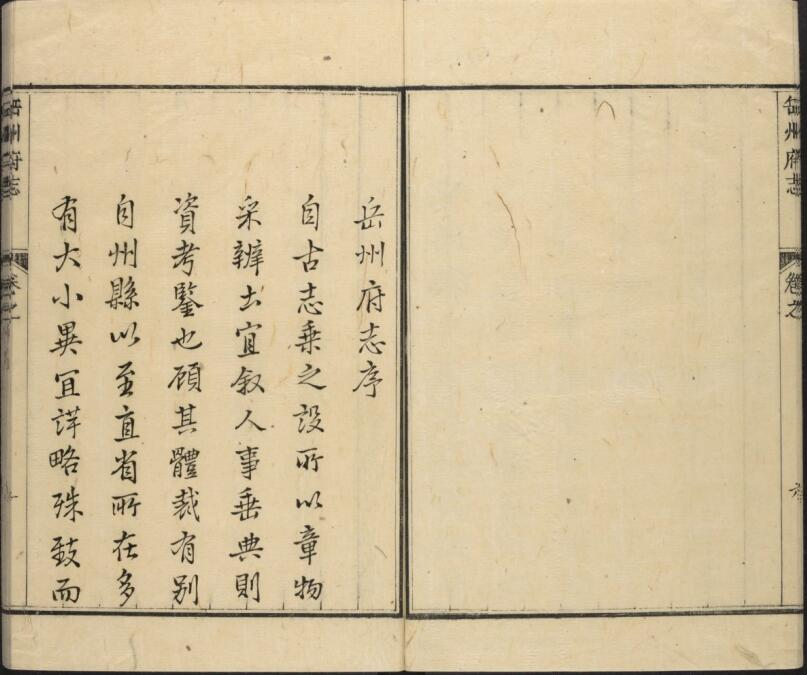 岳州府志
岳州府志序
自古志乗之設所以章物
采辨土宜叙人事垂典則
資考鑒也顧其體裁有别
自州縣以至直省所在多
有大小異宜詳略殊致而
岳州府志
卷之